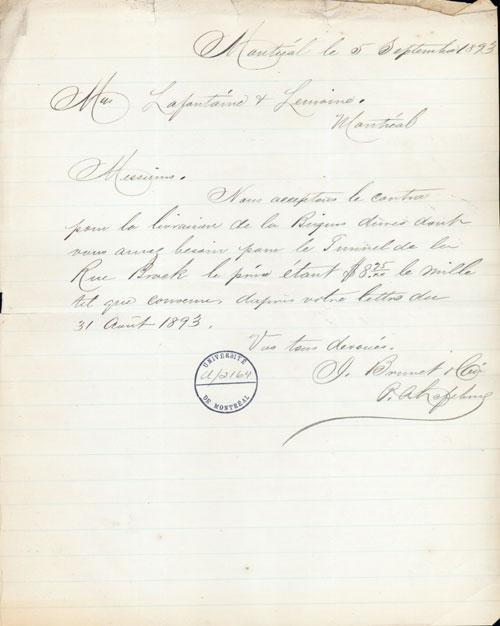 Montréal le 5 Septembre 1893
Mrs Lafontaine & Lemoine.
Montréal
Messieurs.
Nous acceptons le contra
pour la livraison de la Brique dures dont
vous aurez besoin pour le Tunnel de la
Rue Brock le prix étant $8.25 le mille
tel que convenu, depuis votre lettre du
31 Août 1893.
Vos tous devoués.
J. Brunet & Cie
P.
UNIVERSITÉ
U/2164
DE MONTRÉAL